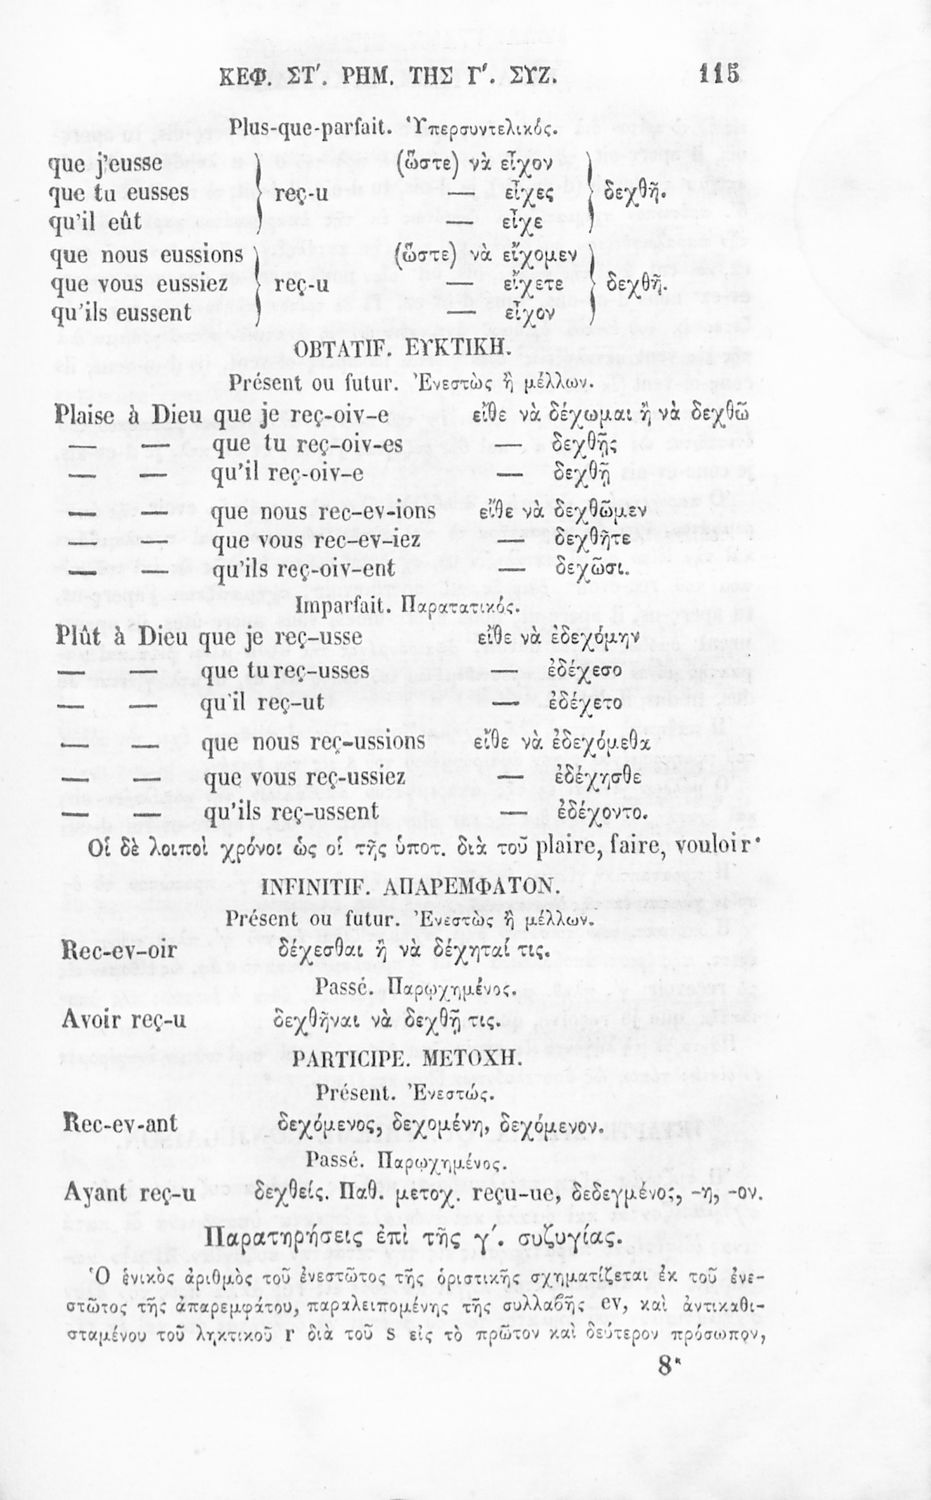 ΚΕΦ. ΣΤ΄. ΡΗΜ. ΤΗΣ Γ΄. ΣΥΖ. 115
Plus-que-parfait. Ὑπερσυντελικός.
que j'eusse (ὥστε) νὰ εἶχον
que tu eusses } reç-u — εἶχες } δεχθῆ.
qu'il eût — εἶχε
que nous eussions (ὥστε) νὰ εἴχομεν
que vous eussiez } reç-u — εἴχετε } δεχθῆ.
qu'ils eussent — εἶχον
OBTATIF. ΕΥΚΤΙΚΗ.
Présent ou futur. Ἐνεστὼς ἢ μέλλων.
Plaise à Dieu que je reç-oiv-e εἴθε νὰ δέχωμαι ἢ νὰ δεχθῶ
— — que tu reç-oiv-es — δεχθῇς
— — qu'il reç-oiv-e — δεχθῇ
— — que nous rec-ev-ions εἴθε νὰ δεχθῶμεν
— — que vous rec-ev-iez — δεχθῆτε
— — qu'ils reç-oiv-ent — δεχῶσι.
Imparfait. Παρατατικός.
Plût à Dieu que je reç-usse εἴθε νὰ ἐδεχόμην
— — que tu reç-usses — ἐδέχεσο
— — qu'il reç-ut — ἐδέχετο
— — que nous reç-ussions εἴθε νὰ ἐδεχόμεθα
— — que vous reç-ussiez — ἐδέχησθε
— — qu'ils reç-ussent — ἐδέχοντο.
Οἱ δὲ λοιποὶ χρόνοι ὡς οἱ τῆς ὑποτ. διὰ τοῦ plaire, faire, vouloir·
INFINITIF. ΑΠΑΡΕΜΦΑΤΟΝ.
Présent ou futur. Ἐνεστὼς ἢ μέλλων.
Rec-ev-oir δέχεσθαι ἢ νὰ δέχηταί τις.
Passé. Παρῳχημένος.
Avoir reç-u δεχθῆναι νὰ δεχθῇ τις.
PARTICIPE. ΜΕΤΟΧΗ.
Présent. Ἐνεστώς.
Rec-ev-ant δεχόμενος, δεχομένη, δεχόμενον.
Passé. Παρῳχημένος.
Ayant reç-u δεχθείς. Παθ. μετοχ. reçu-ue, δεδεγμένος, -η, -ον.
Παρατηρήσεις ἐπὶ τῆς γ΄. συζυγίας.
Ὁ ἑνικὸς ἀριθμὸς τοῦ ἐνεστῶτος τῆς ὁριστικῆς σχηματίζεται ἐκ τοῦ ἐνε-
στῶτος τῆς ἀπαρεμφάτου, παραλειπομένης τῆς συλλαβῆς ev, καὶ ἀντικαθι-
σταμένου τοῦ ληκτικοῦ r διὰ τοῦ s εἰς τὸ πρῶτον καὶ δεύτερον πρόσωπον,
8*